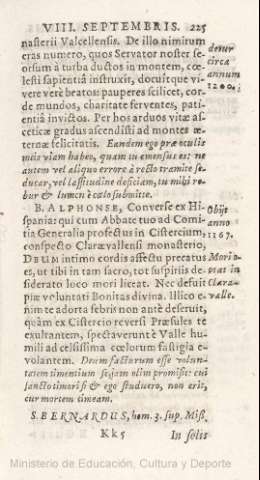 VIII. SEPTEMBRIS. 225
nasterii Valcellensis. De illo nimirum
eras numero, quos Servator noster se-
orsum à turba ductos in montem, cœ-
lesti sapientiâ instruxit, docuitque vi-
vere verè beatos: pauperes scilicet, cor-
de mundos, charitate ferventes, patien-
tiâ invictos. Per hos arduos vitæ as-
ceticæ gradus ascendisti ad montes æ-
ternæ felicitatis. Eandem ego præ oculis
meis viam habeo, quam tu emensus es: ne
autem vel aliquo errore à recto tramite se-
ducar, vel lassitudine deficiam, tu mihi ro-
bur & lumen è cælo submitte.
detur
circa
annum
1200.
B. ALPHONSE, Converse ex Hi-
spania: qui cum Abbate tuo ad Comi-
tia Generalia profectus in Cistercium,
conspecto Claræ vallensi monasterio,
DEUM intimo cordis affectu precatus
es, ut tibi in tam sacro, tot suspiriis de-
siderato loco mori liceat. Nec defuit
piæ voluntati Bonitas divina. Illico e-
nim te adorta febris non antè deseruit,
quàm ex Cistercio reversi Præsules te
exultantem, spectaverunt è Valle hu-
mili ad celsissima cœlorum fastigia e-
volantem. Deum facturum esse volun-
tatem timentium se, jam olim promisit: cui
sancto timori si & ego studuero, non erit,
cur mortem timeam.
Obijt
anno
1167.
Mori o-
ptat in
Clara-
valle.
S. BERNARDUS, hom. 3. sup. Miss.
Kk5 In solis
Ministerio de Educación, Cultura y Deporte